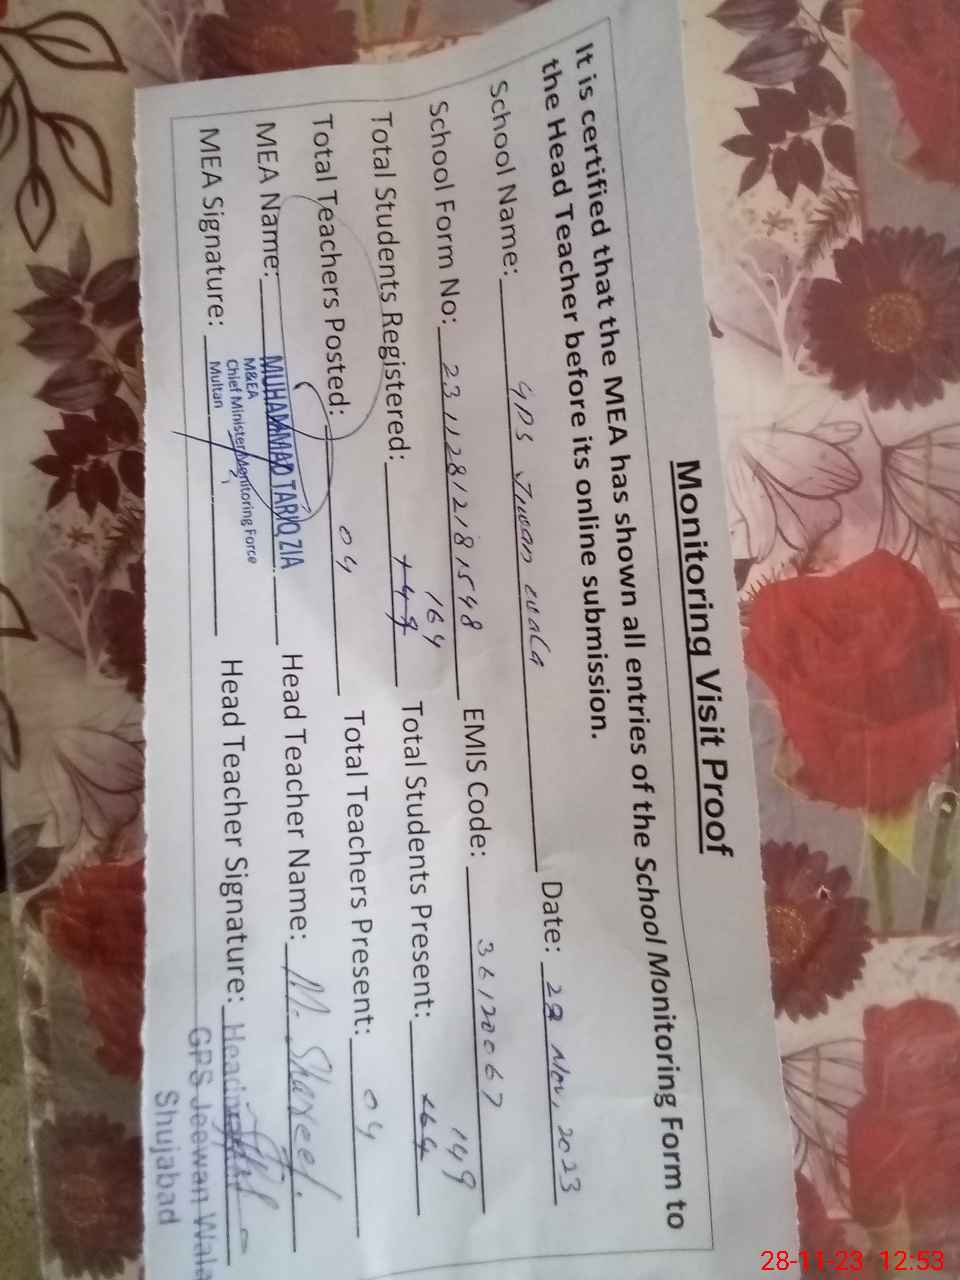 Monitoring Visit Proof
It is certified that the MEA has shown all entries of the School Monitoring Form to
the Head Teacher before its online submission.
School Name: GPS Jiwan wala Date: 28 Nov, 2023
School Form No: 23112812181548 EMIS Code: 36120067
Total Students Registered: 149 164 Total Students Present: 164 149
Total Teachers Posted: 04 Total Teachers Present: 04
MEA Name: MUHAMMAD TARIQ ZIA Head Teacher Name: M. Shareef.
M&EA
Chief Minister Monitoring Force
Multan
MEA Signature: Head Teacher Signature:
GPS Jeewan Wala
Shujabad
28-11-23 12:53